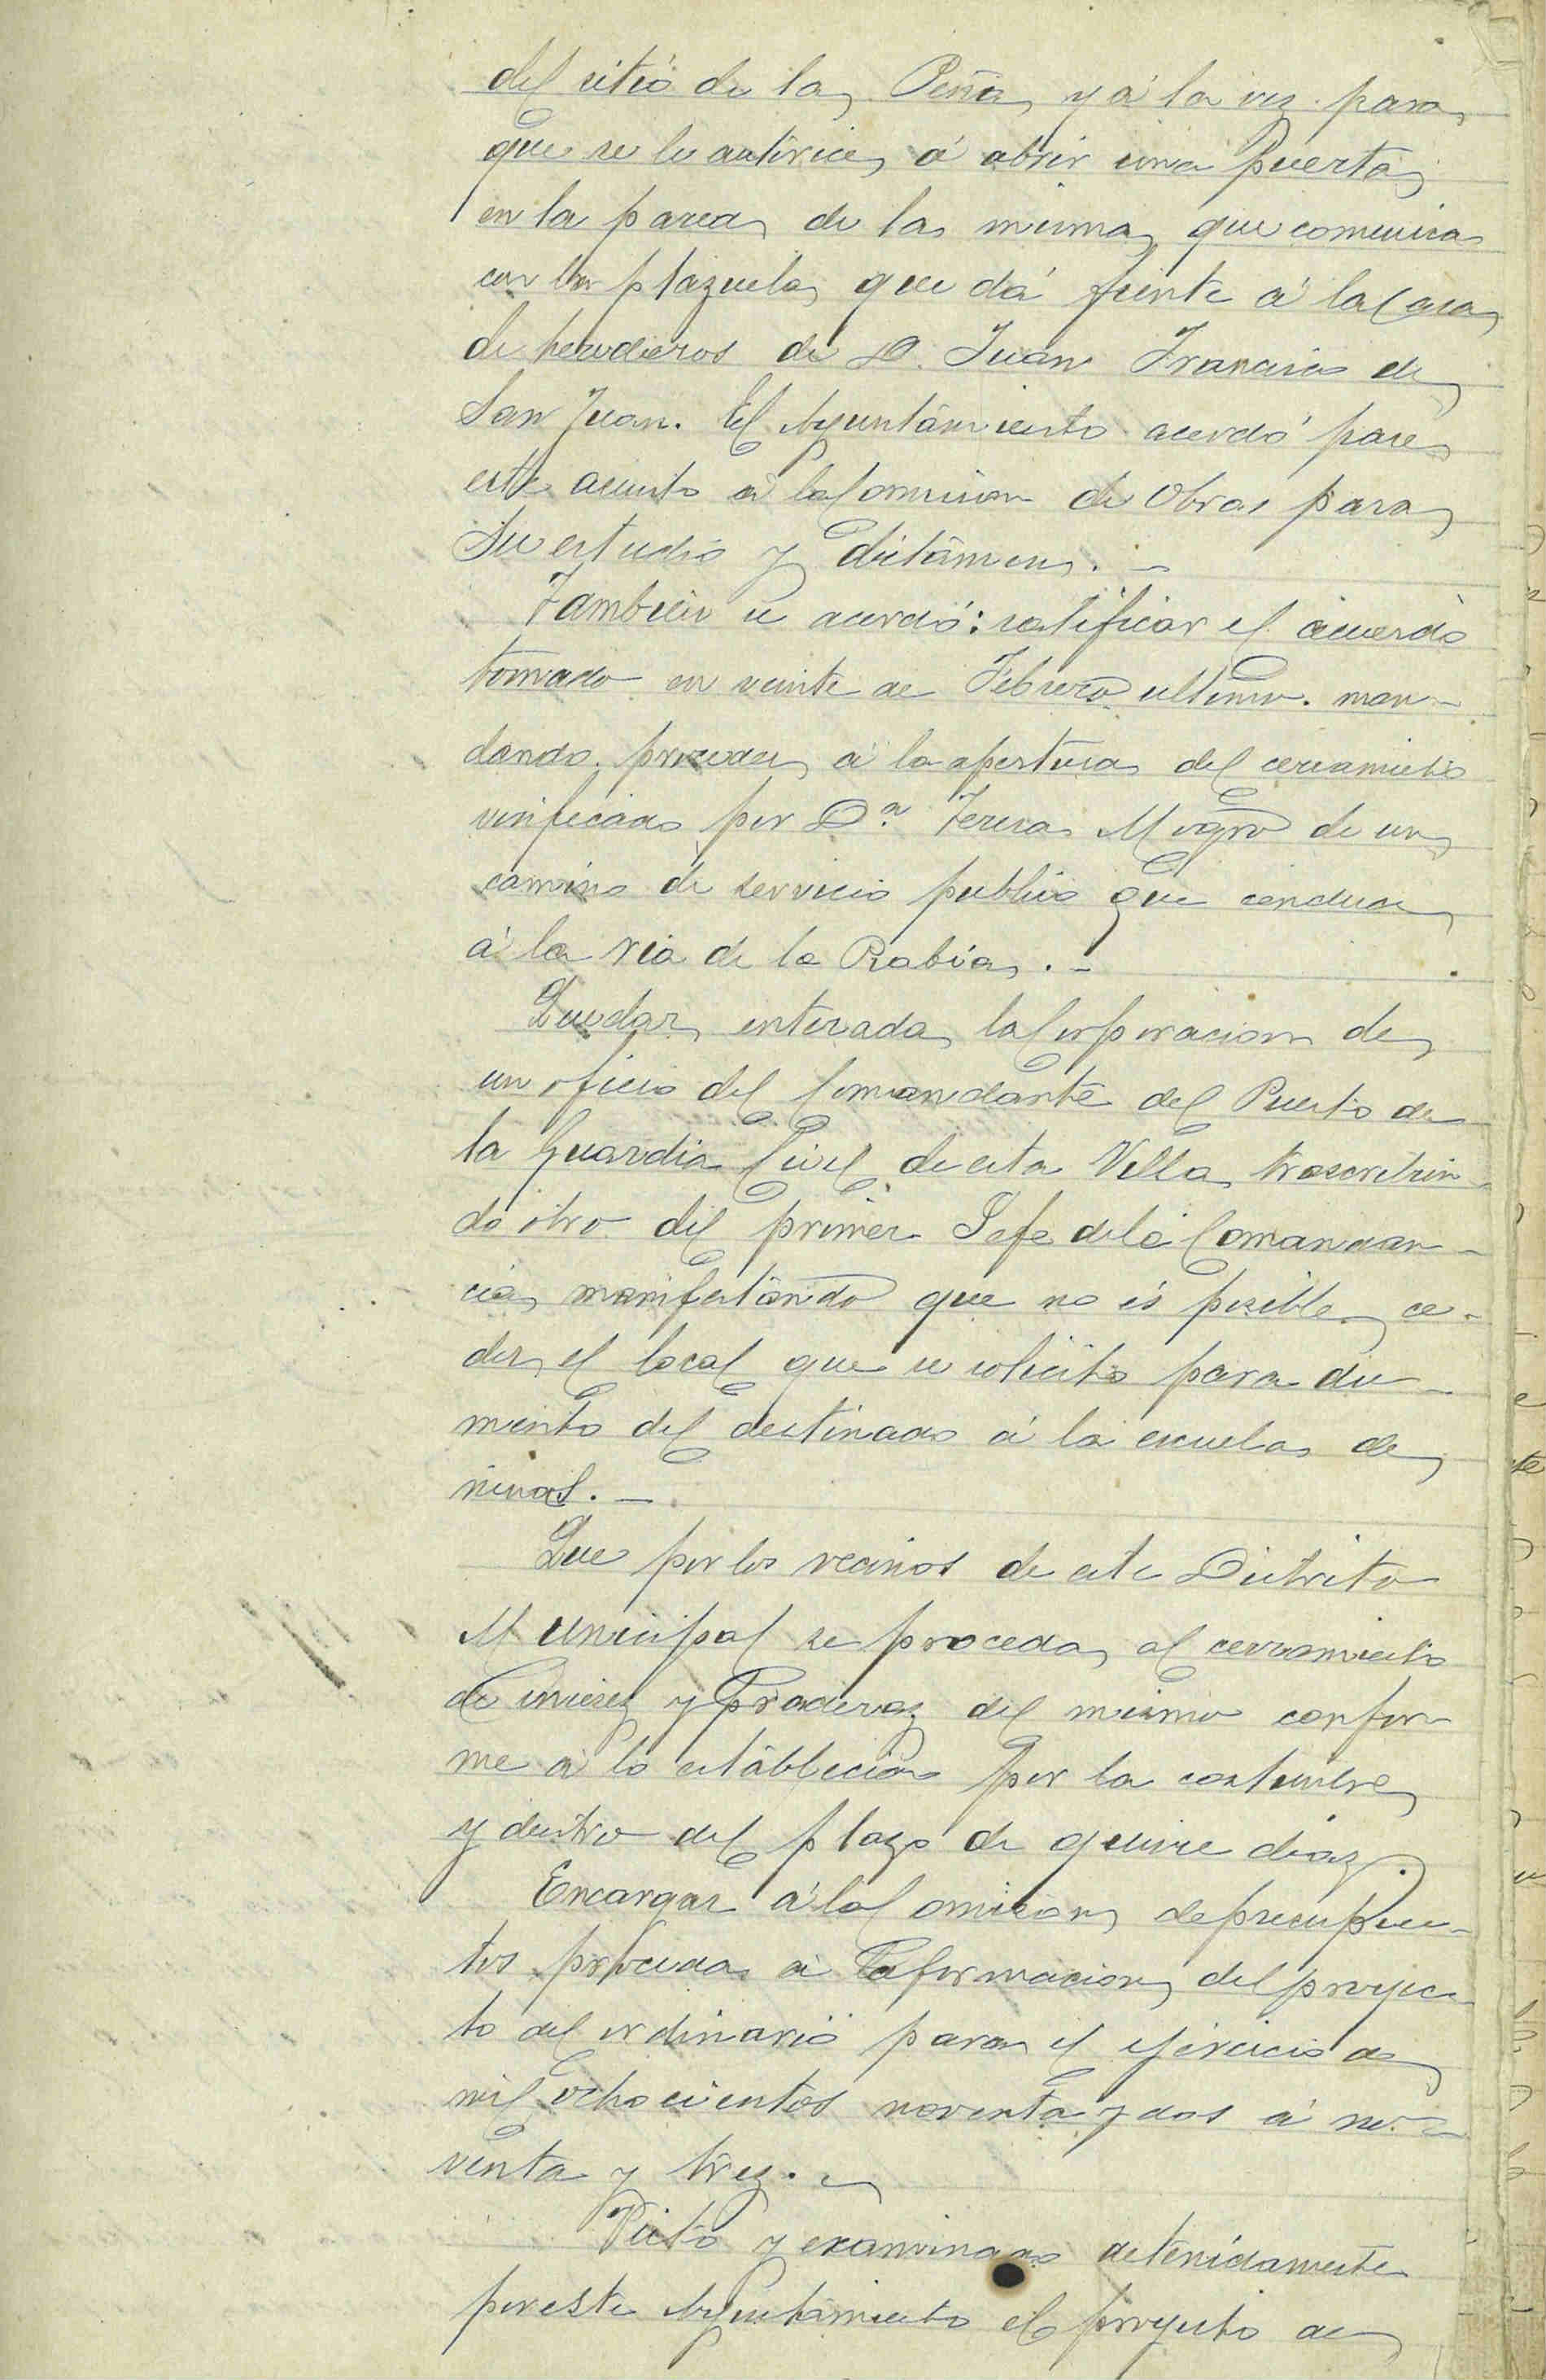 del sitio de la Peña, y á la vez para
que se le autorice á abrir una Puerta
en la pared de la misma que comunica
con la plazuela que dá frente á la Casa
de herederos de D. Juan Francisco de
San Juan. El Ayuntamiento acordó pase
este asunto á la Comision de Obras para
su estudio y dictámen. —
Tambien se acordó: ratificar el acuerdo
tomado en veinte de Febrero ultimo. man-
dando proceder á la apertura del cerramiento
verificado por Dª Teresa Mogro de un
camino de servicio publico que conduce
á la ria de la Rabia. —
Quedar enterada la Corporacion de
un oficio del Comandante del Puesto de
la Guardia Civil de esta Villa, trascribien-
do otro del primer Jefe de la Comandan-
cia, manifestando que no es posible ce-
der el local que se solicitó para au-
mento del destinado á la escuela de
niñas. —
Que por los vecinos de este Distrito
Municipal se proceda al cerramiento
de mieses y Praderas del mismo confor-
me á lo establecido por la costumbre
y dentro del plazo de quince dias.
Encargar á la Comision de presupues-
tos proceda á la formacion del proyec-
to del ordinario para el ejercicio de
mil ochocientos noventa y dos á no-
venta y tres. —
Visto y examinado detenidamente
por este Ayuntamiento el proyecto de